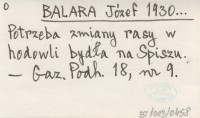 o
BALARA Józef 1930...
Potrzeba zmiany rasy w
hodowli bydła na Spiszu.
— Gaz. Podh. 18, nr 9.